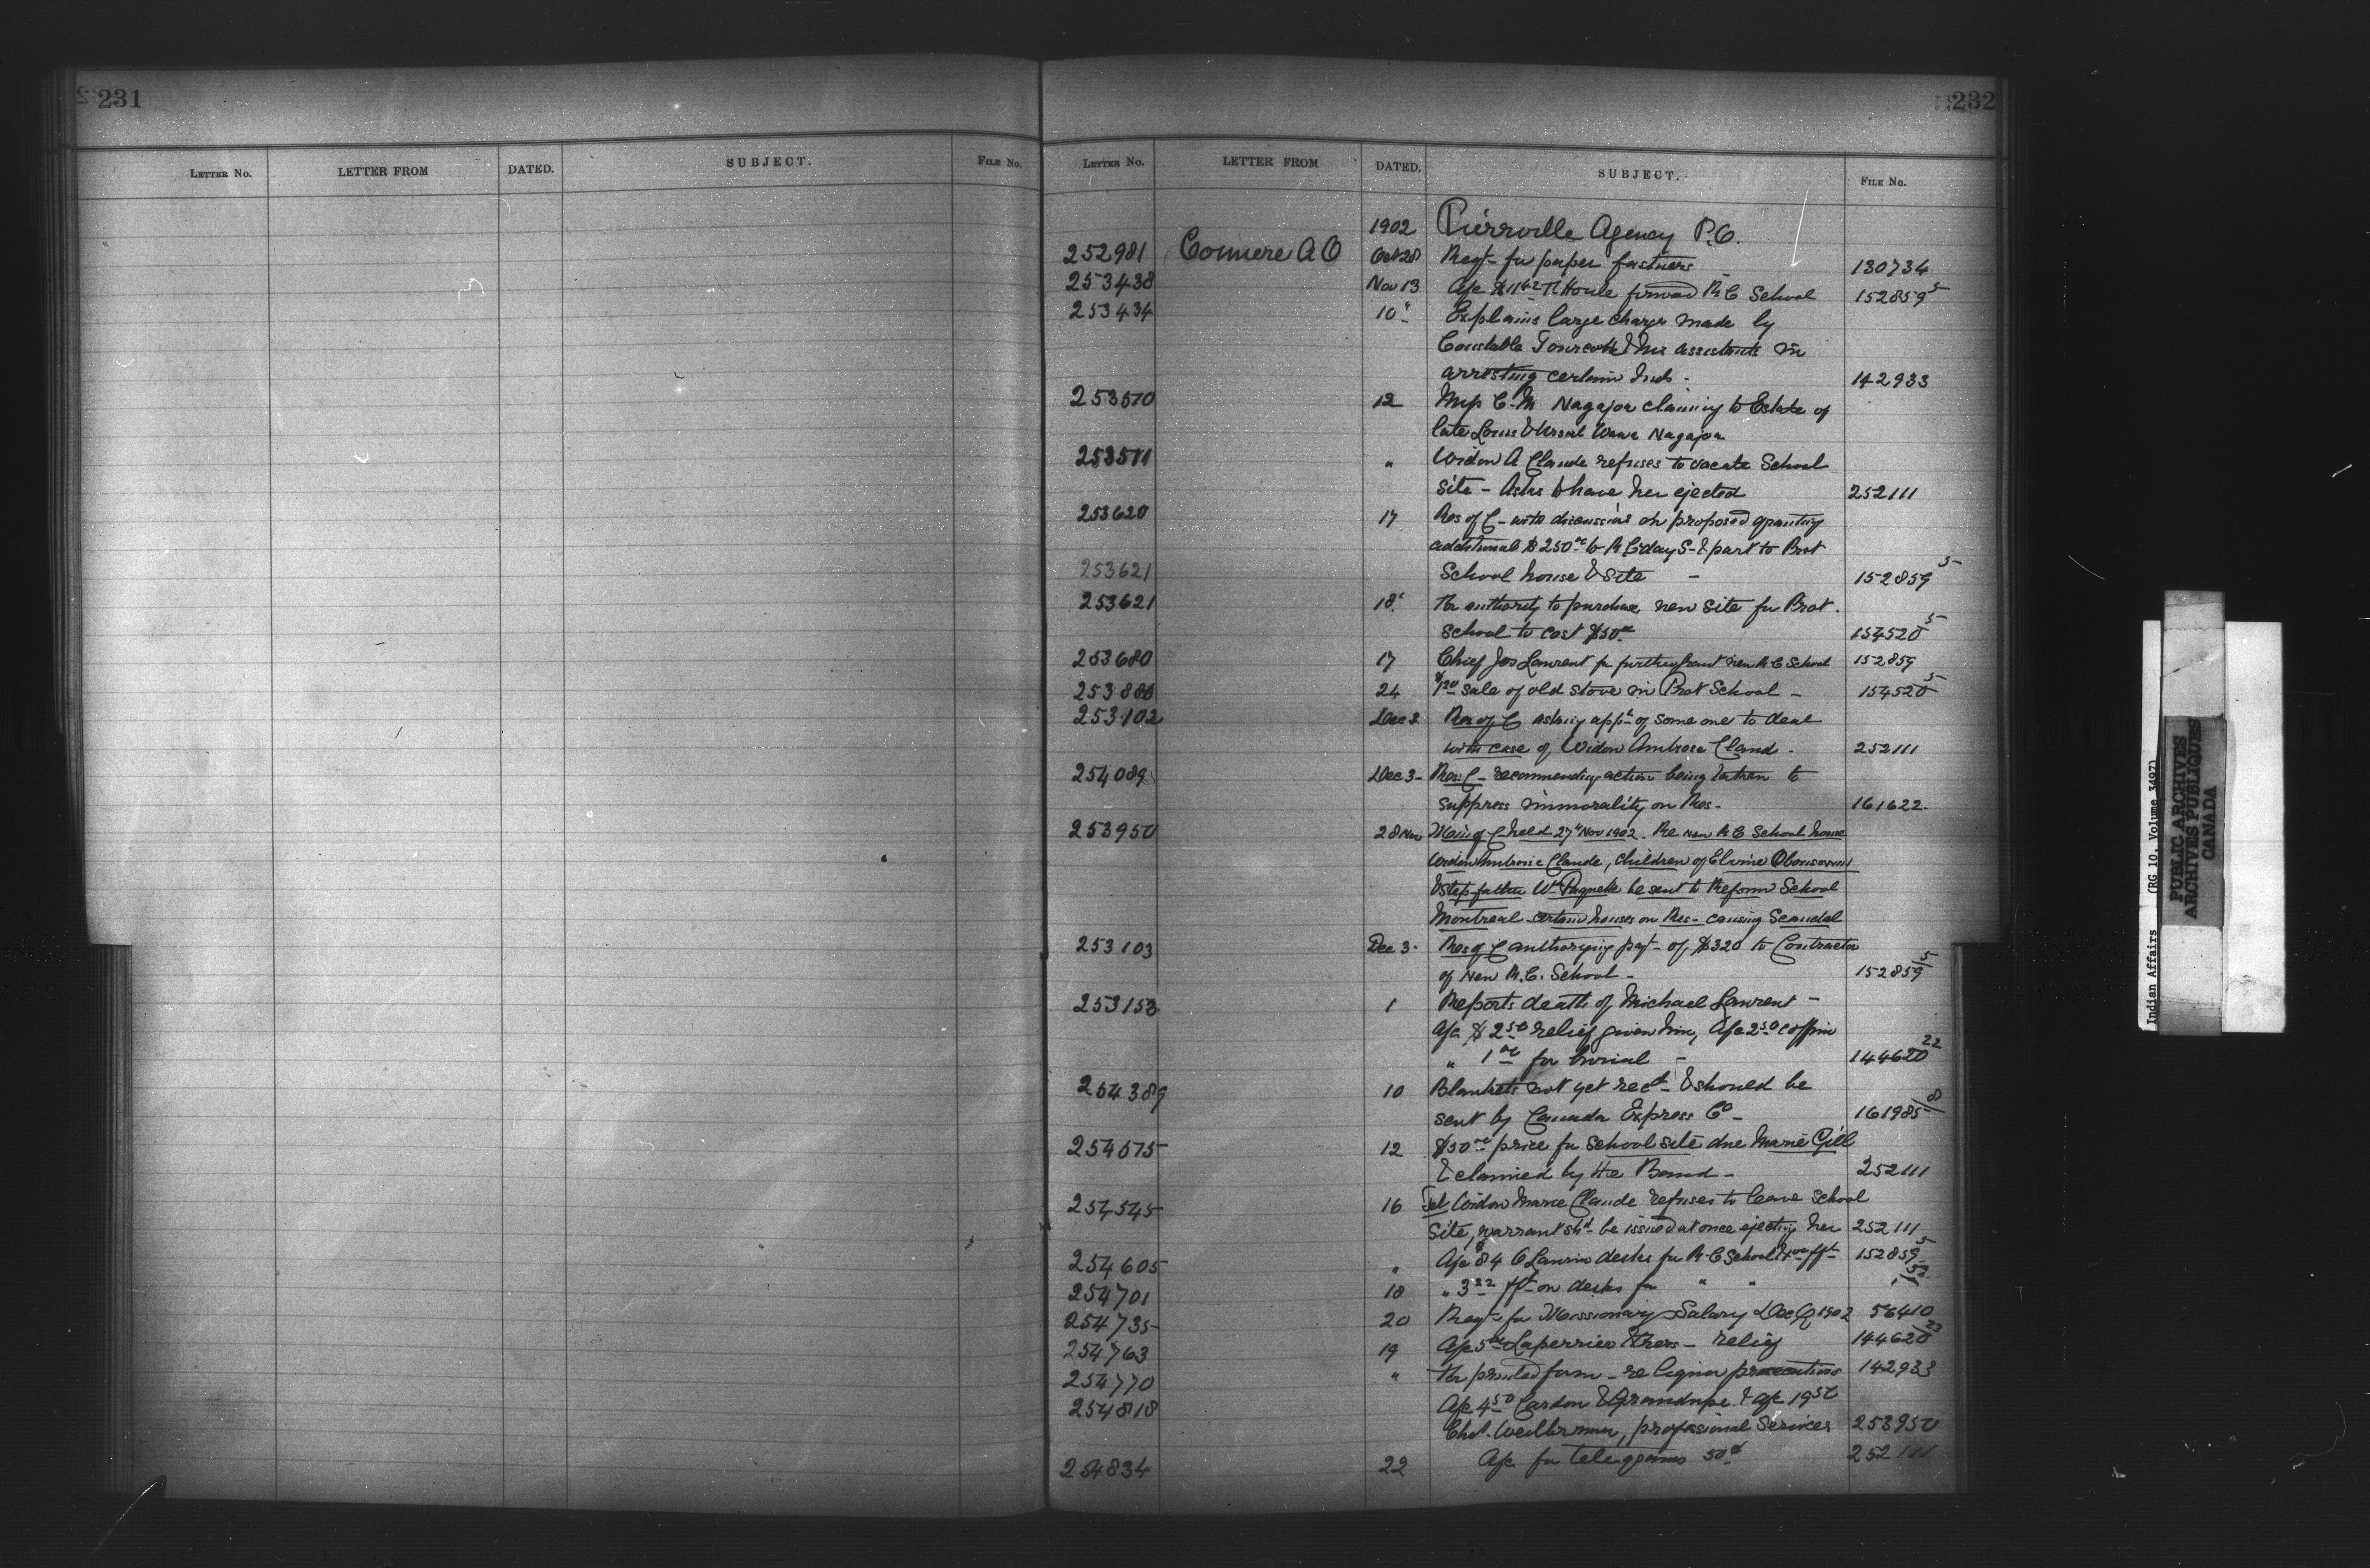 231
LETTER NO. LETTER FROM DATED. SUBJECT. FILE NO.
232
LETTER NO. LETTER FROM DATED. SUBJECT. FILE NO.
1902 Pierrville Agency P.Q.
252981 Comiere A O Oct 28 Reqt for paper fastners 130734
253438 Nov 13 A/c $11 42 Houle R C School 152859 5
253434 10 " Explains large charge made by
Constable & his assistants in
arresting certain Inds - 142933
253570 12 C. M Nagajoa claiming to Estate of
late Louis & Ursul Wawa Nagajoa
253571 " Widow A Claude refuses to vacate School
site - Asks to have her ejected 252111
253620 17 Res of C - with discussions on proposed granting
additional $250 to R C day S - & part to Prot
253621 School house & site - 152859 5
253621 18 " for authority to purchase new site for Prot.
School to cost $50 154520 5
253680 17 Chief Jos Laurent for further grant new R C School 152859
253888 24 sale of old stove in Prot School - 154520 5
253102 Dec 2 Res of C asking appt of some one to deal
with case of Widow Ambrose Claud - 252111
254089 Dec 3 - Res C - recommending action being taken to
suppress immorality on Res - 161622
253950 28 Nov of C held 27 " Nov 1902. Re new R C School house
Widow Ambroise Claude, children of Elvine
& step-father Wm Paquette be sent to Reform School
Montreal - certain houses on Res - causing Scandal
253103 Dec 3 - Res of C authorizing payt - of $320 to Contractor
of New R.C. School - 152859 5
253153 1 Reports death of Michael Laurent -
A/c $2 50 relief given him, A/c 2 50 coffin
" 1 00 for burial - 144620 22
254389 10 Blankets not yet recd - & should be
sent by Canada Express Co - 161985 8
254575 12 $50 00 price for school site due Marie Gill
& claimed by the Band - 252111
254545 16 Tel Widow Marie Claude refuses to leave School
Site, warrant shd - be issued at once ejecting her 252111
254605 " A/c $84 O Lauriu desks for R - C School frt 152859 5
254701 18 " 3 22 frt on desks for " "
254735 20 Reqt for Missionary Salary Dec Q 1902 56410
254763 19 A/c 5 00 Laperriere & thers - relief 144620 23
254770 " for printed form - re liquor prosecutions 142933
254818 A/c 4 50 Cardon & Grandupe & a/c 19 50
Chas. Weilbrenner, professional Services 253950
254834 22 A/c for telegrams 50 252111
Indian Affairs (RG 10, Volume 3497)
PUBLIC ARCHIVES
ARCHIVES PUBLIQUES
CANADA